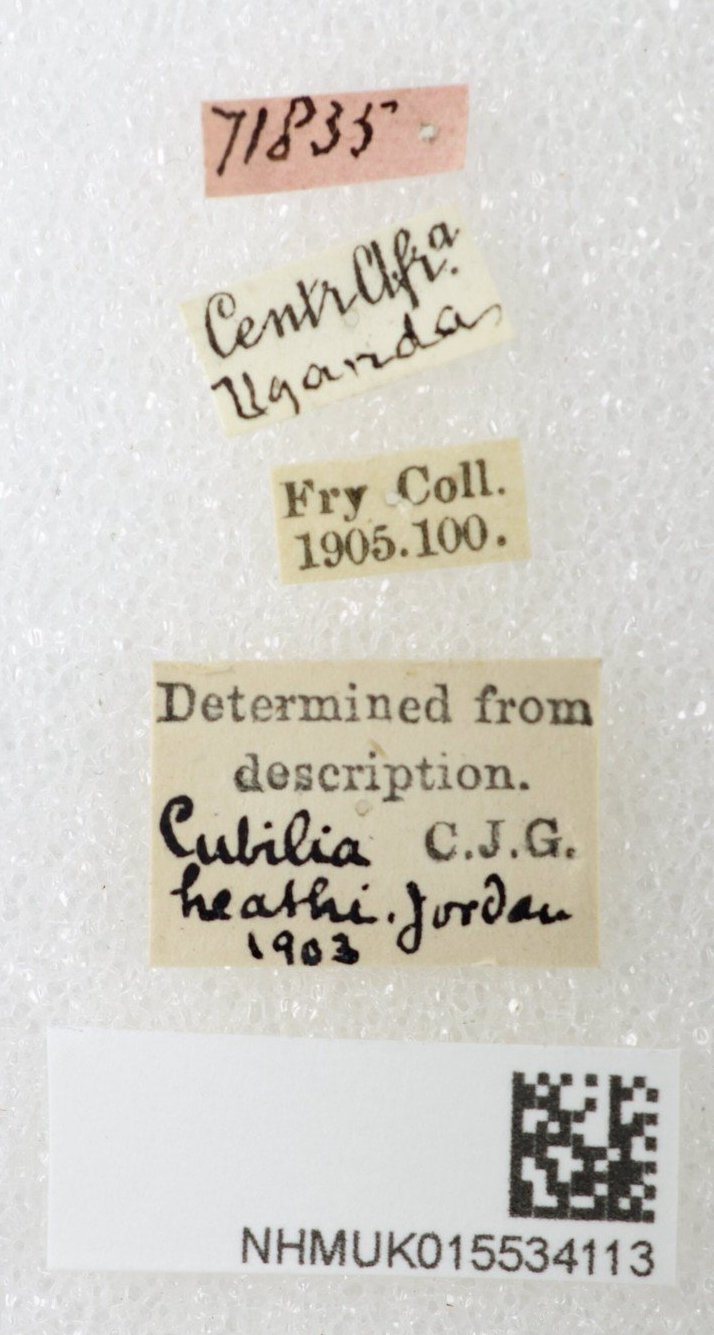 71835
Centr Afr.a
Uganda
Fry Coll.
1905.100.
Determined from
description.
Cubilia C.J.G.
heathi. Jordan
1903
NHMUK015534113